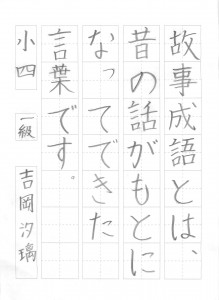 故事成語とは、
昔の話がもとに
なってできた
言葉です。
小四 一級 吉岡汐璃